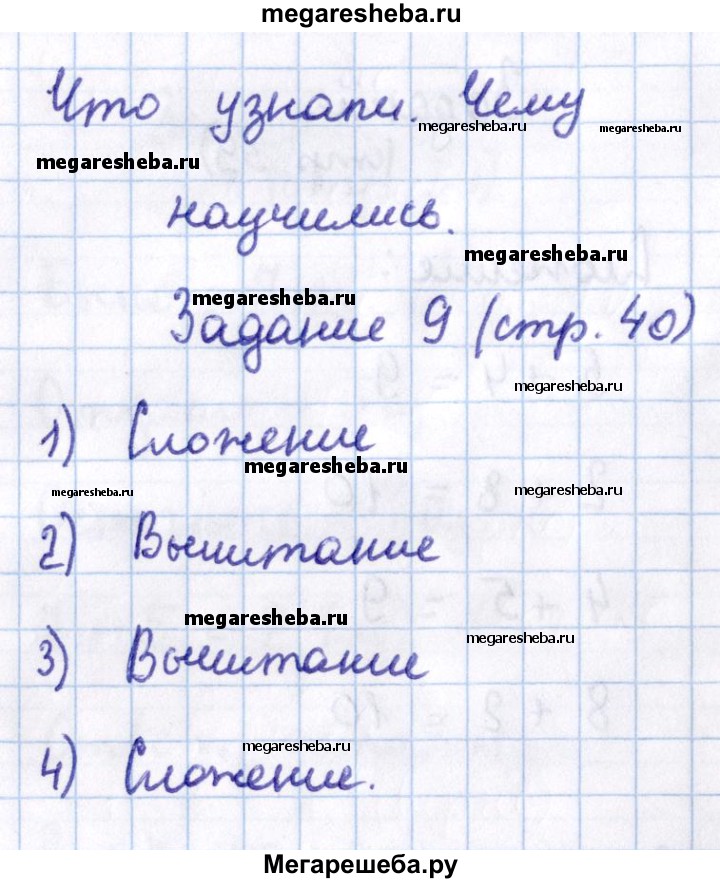 megaresheba.ru
Что узнали. Чему
megaresheba.ru
megaresheba.ru
megaresheba.ru
научились.
megaresheba.ru
megaresheba.ru
Задание 9 (стр. 40)
megaresheba.ru
1) Сложение
megaresheba.ru
megaresheba.ru
megaresheba.ru
2) Вычитание
megaresheba.ru
megaresheba.ru
3) Вычитание
megaresheba.ru
4) Сложение.
Мегарешеба.ру